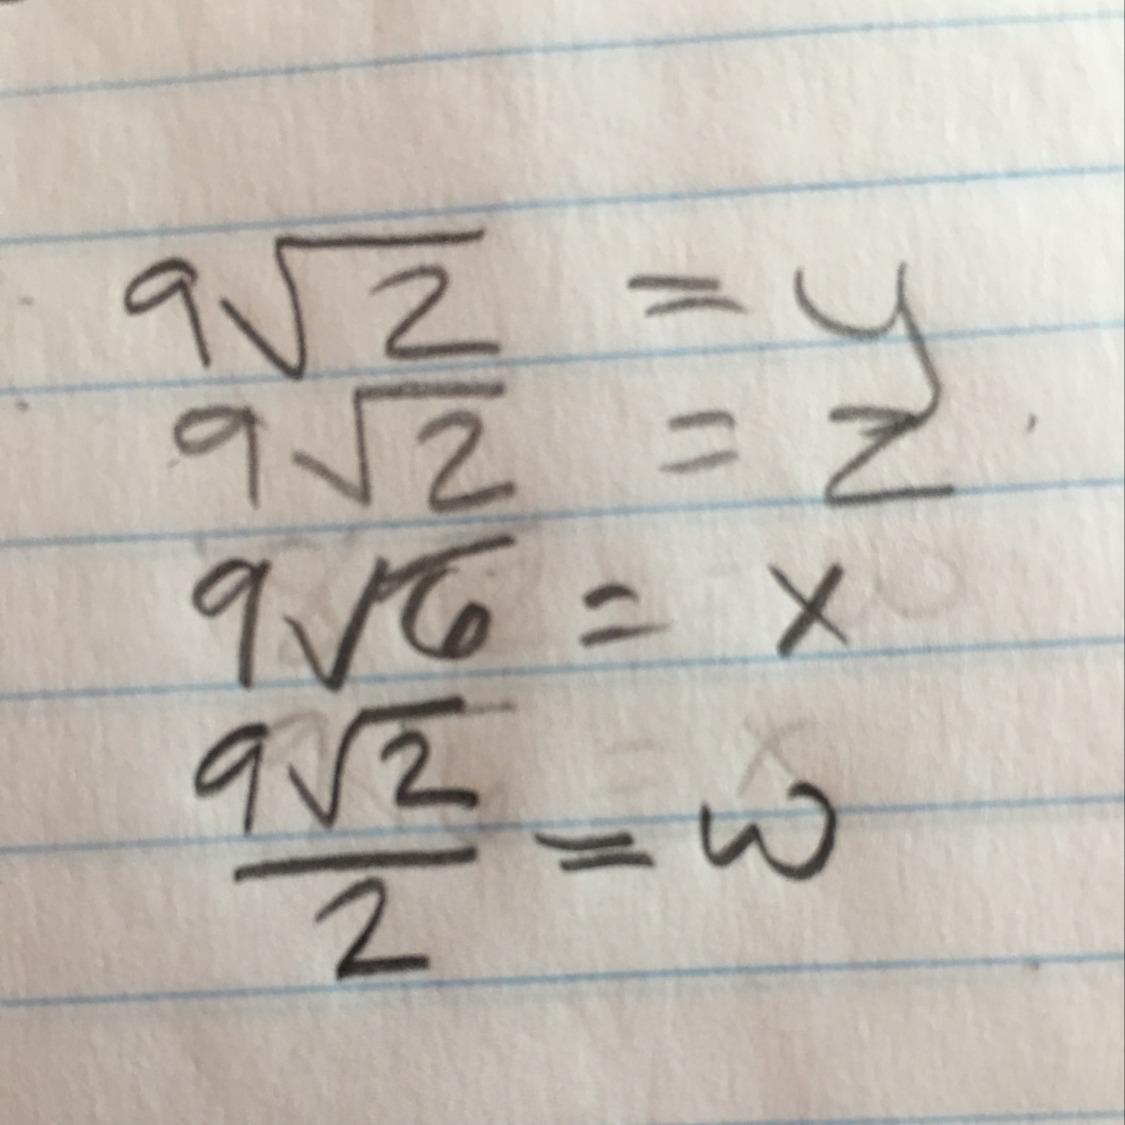 9√2 = y
9√2 = z
9√6 = x
9√2/2 = w